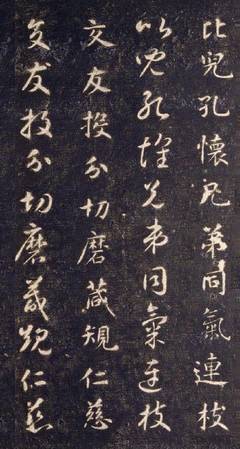 比兒孔懷兄弟同氣連枝
比兒孔懷兄弟同氣連枝
交友投分切磨箴規仁慈
交友投分切磨箴規仁慈